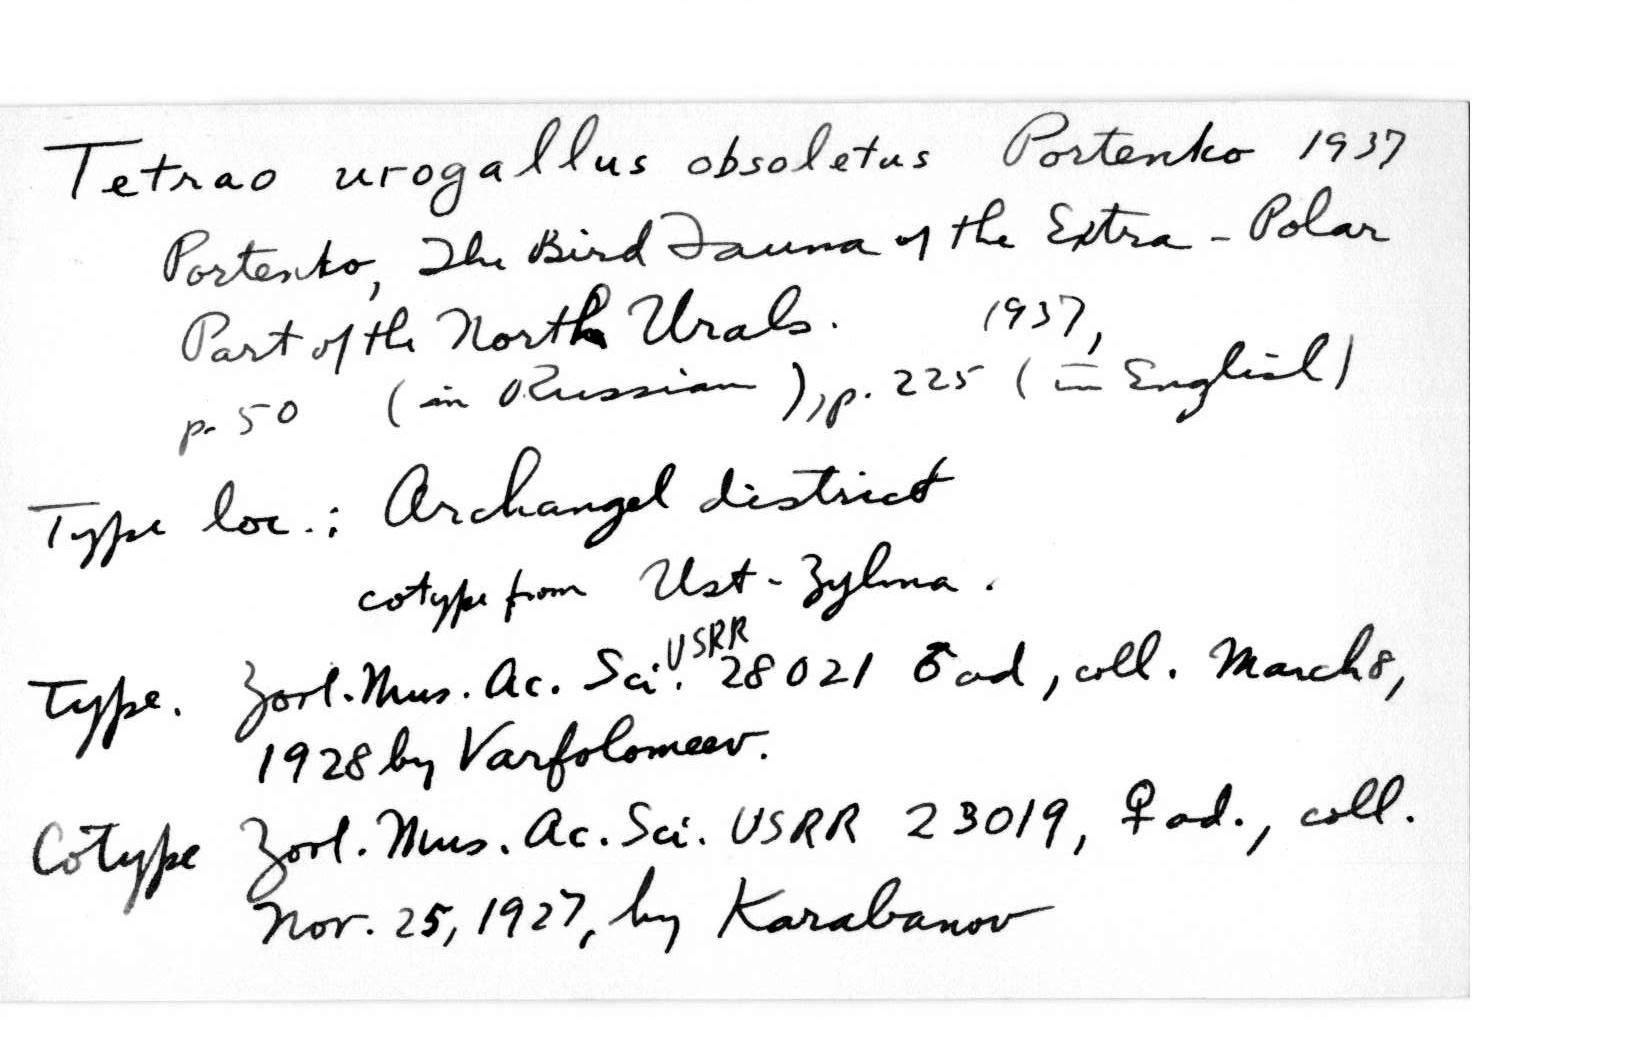 Tetrao urogallus obsoletus Portenko 1937
Portenko, The Bird Fauna of the Extra-Polar
Part of the North Urals. 1937,
p. 50 (in Russian), p. 225 (in English)
Type loc.: Archangel district
cotype from Ust-Zylma.
Type. Zool. Mus. Ac. Sci. USRR 28021 ♂ ad, coll. March 8,
1928 by Varfolomeev.
Cotype Zool. Mus. Ac. Sci. USRR 23019, ♀ ad., coll.
Nov. 25, 1927, by Karabanov